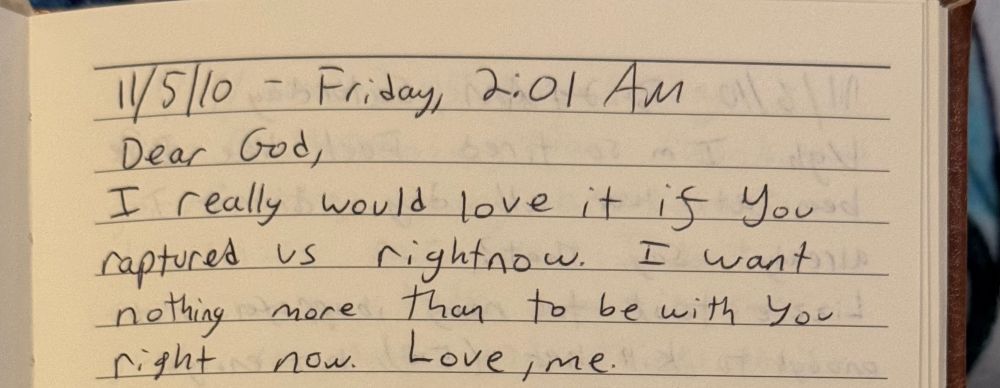 11/5/10 - Friday, 2:01 AM
Dear God,
I really would love it if You
raptured us rightnow. I want
nothing more than to be with You
right now. Love, me.